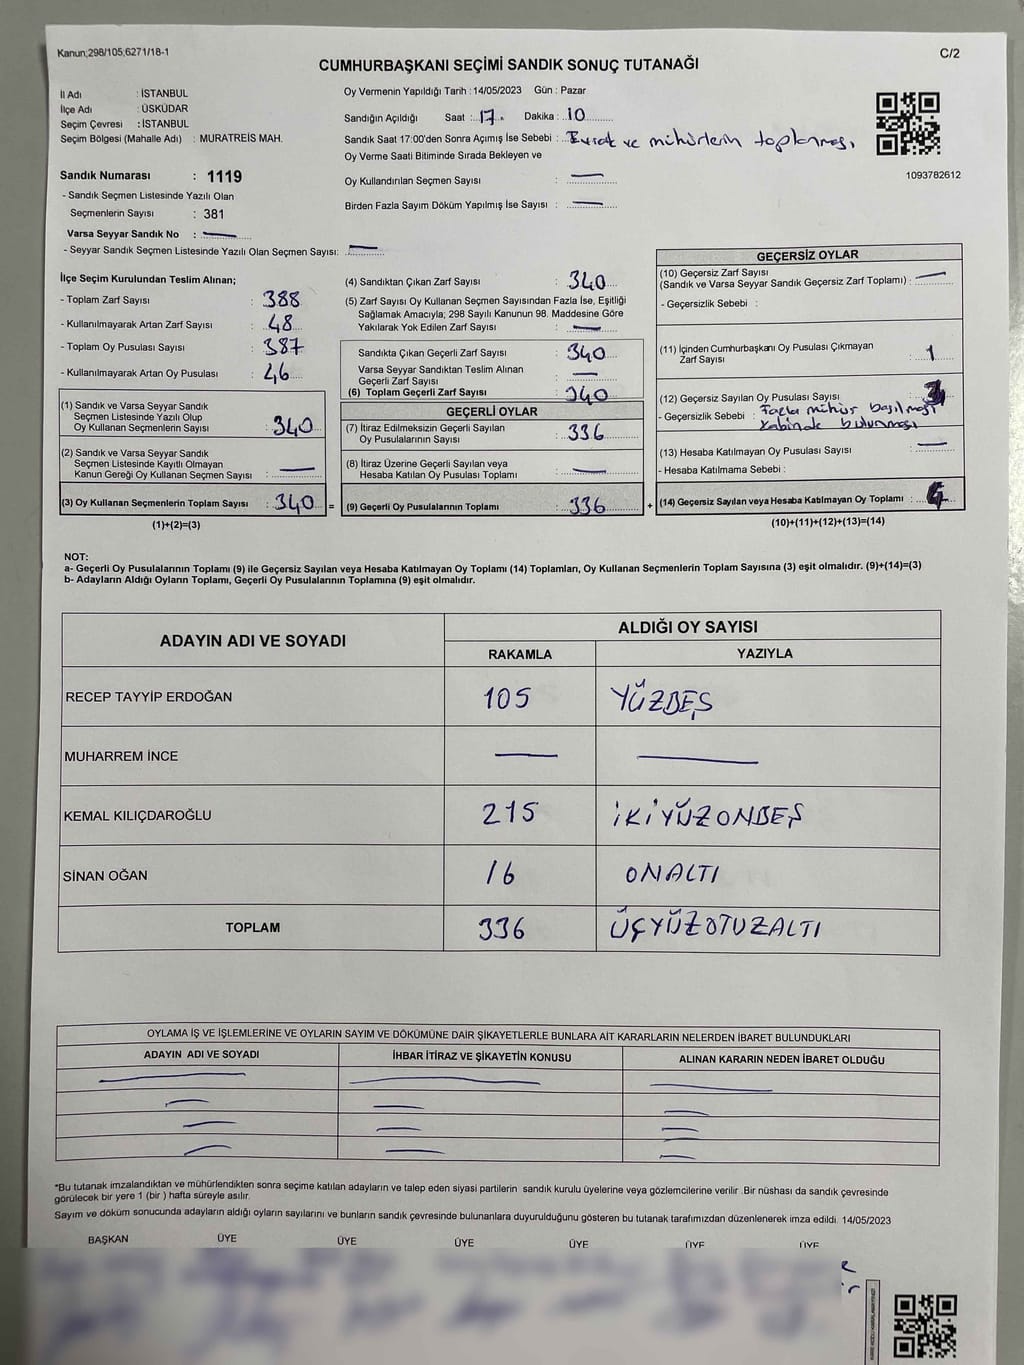 Kanun;298/105;6271/18-1
C/2
CUMHURBAŞKANI SEÇİMİ SANDIK SONUÇ TUTANAĞI
İl Adı : İSTANBUL
İlçe Adı : ÜSKÜDAR
Seçim Çevresi : İSTANBUL
Seçim Bölgesi (Mahalle Adı) : MURATREİS MAH.
Oy Vermenin Yapıldığı Tarih : 14/05/2023 Gün : Pazar
Sandığın Açıldığı Saat : 17. Dakika : 10
Sandık Saat 17:00'den Sonra Açımış İse Sebebi : Evrak ve mühürlerin toplanması
Oy Verme Saati Bitiminde Sırada Bekleyen ve
Oy Kullandırılan Seçmen Sayısı : —
Birden Fazla Sayım Döküm Yapılmış İse Sayısı : —
1093782612
Sandık Numarası : 1119
- Sandık Seçmen Listesinde Yazılı Olan
Seçmenlerin Sayısı : 381
Varsa Seyyar Sandık No : —
- Seyyar Sandık Seçmen Listesinde Yazılı Olan Seçmen Sayısı: —
İlçe Seçim Kurulundan Teslim Alınan;
- Toplam Zarf Sayısı : 388
- Kullanılmayarak Artan Zarf Sayısı : 48
- Toplam Oy Pusulası Sayısı : 387
- Kullanılmayarak Artan Oy Pusulası : 46
(1) Sandık ve Varsa Seyyar Sandık
Seçmen Listesinde Yazılı Olup
Oy Kullanan Seçmenlerin Sayısı : 340
(2) Sandık ve Varsa Seyyar Sandık
Seçmen Listesinde Kayıtlı Olmayan
Kanun Gereği Oy Kullanan Seçmen Sayısı : —
(3) Oy Kullanan Seçmenlerin Toplam Sayısı : 340 =
(1)+(2)=(3)
(4) Sandıktan Çıkan Zarf Sayısı : 340
(5) Zarf Sayısı Oy Kullanan Seçmen Sayısından Fazla İse, Eşitliği
Sağlamak Amacıyla; 298 Sayılı Kanunun 98. Maddesine Göre
Yakılarak Yok Edilen Zarf Sayısı : —
Sandıkta Çıkan Geçerli Zarf Sayısı : 340
Varsa Seyyar Sandıktan Teslim Alınan
Geçerli Zarf Sayısı : —
(6) Toplam Geçerli Zarf Sayısı : 340
GEÇERLİ OYLAR
(7) İtiraz Edilmeksizin Geçerli Sayılan
Oy Pusulalarının Sayısı : 336
(8) İtiraz Üzerine Geçerli Sayılan veya
Hesaba Katılan Oy Pusulası Toplamı : —
(9) Geçerli Oy Pusulalarının Toplamı : 336 +
GEÇERSİZ OYLAR
(10) Geçersiz Zarf Sayısı
(Sandık ve Varsa Seyyar Sandık Geçersiz Zarf Toplamı) : —
- Geçersizlik Sebebi :
(11) İçinden Cumhurbaşkanı Oy Pusulası Çıkmayan
Zarf Sayısı : 1
(12) Geçersiz Sayılan Oy Pusulası Sayısı : 3
- Geçersizlik Sebebi : Fazla mühür basılması
kabinde bulunması
(13) Hesaba Katılmayan Oy Pusulası Sayısı : —
- Hesaba Katılmama Sebebi :
(14) Geçersiz Sayılan veya Hesaba Katılmayan Oy Toplamı : 4
(10)+(11)+(12)+(13)=(14)
NOT:
a- Geçerli Oy Pusulalarının Toplamı (9) ile Geçersiz Sayılan veya Hesaba Katılmayan Oy Toplamı (14) Toplamları, Oy Kullanan Seçmenlerin Toplam Sayısına (3) eşit olmalıdır. (9)+(14)=(3)
b- Adayların Aldığı Oyların Toplamı, Geçerli Oy Pusulalarının Toplamına (9) eşit olmalıdır.
ADAYIN ADI VE SOYADI
ALDIĞI OY SAYISI
RAKAMLA YAZIYLA
RECEP TAYYİP ERDOĞAN 105 YÜZBEŞ
MUHARREM İNCE — —
KEMAL KILIÇDAROĞLU 215 İKİYÜZONBEŞ
SİNAN OĞAN 16 ONALTI
TOPLAM 336 ÜÇYÜZOTUZALTI
OYLAMA İŞ VE İŞLEMLERİNE VE OYLARIN SAYIM VE DÖKÜMÜNE DAİR ŞİKAYETLERLE BUNLARA AİT KARARLARIN NELERDEN İBARET BULUNDUKLARI
ADAYIN ADI VE SOYADI İHBAR İTİRAZ VE ŞİKAYETİN KONUSU ALINAN KARARIN NEDEN İBARET OLDUĞU
*Bu tutanak imzalandıktan ve mühürlendikten sonra seçime katılan adayların ve talep eden siyasi partilerin sandık kurulu üyelerine veya gözlemcilerine verilir .Bir nüshası da sandık çevresinde
görülecek bir yere 1 (bir ) hafta süreyle asılır.
Sayım ve döküm sonucunda adayların aldığı oyların sayılarını ve bunların sandık çevresinde bulunanlara duyurulduğunu gösteren bu tutanak tarafımızdan düzenlenerek imza edildi. 14/05/2023
BAŞKAN ÜYE ÜYE ÜYE ÜYE ÜYE ÜYE